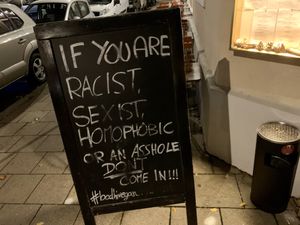 IF YOU ARE
RACIST,
SEXIST,
HOMOPHOBIC
OR AN ASSHOLE
DONT
COME IN!!!